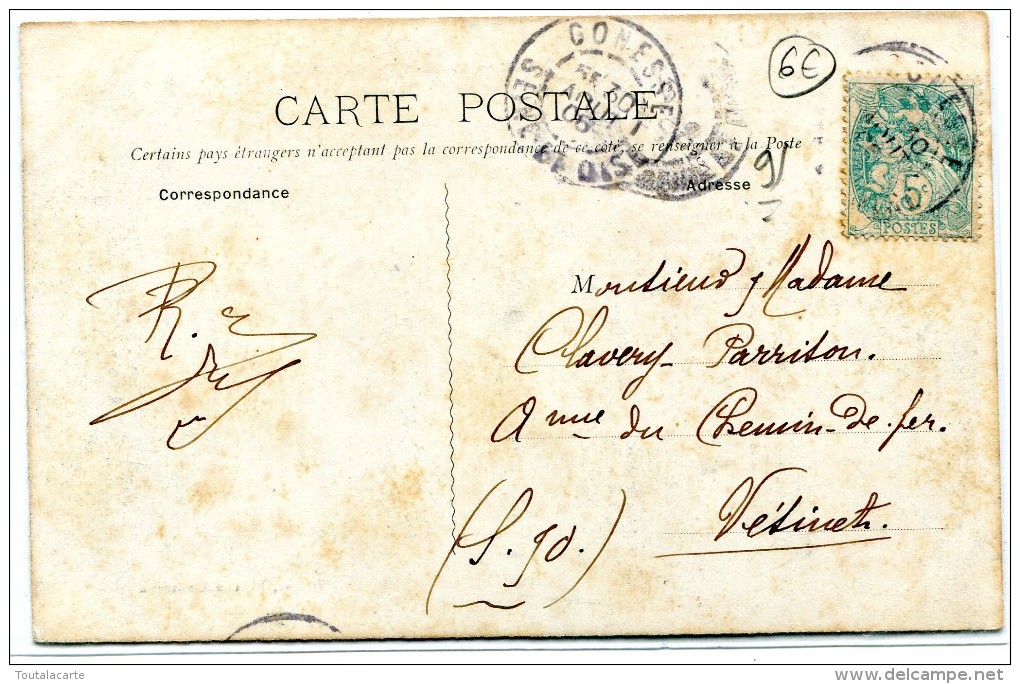 GONESSE
SEINE-ET-OISE
30
AOUT
05
6€
CARTE POSTALE
Certains pays étrangers n'acceptant pas la correspondance de ce côté, se renseigner à la Poste
Correspondance
Adresse
5c
POSTES
Monsieur & Madame
Clavery-Parriton.
Anue du Chemin-de-fer.
Vésinet.
(S. &O.)
Toutalacarte
delcampe.net